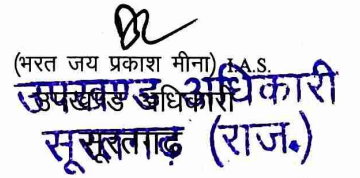 (भरत जय प्रकाश मीना) I.A.S.
उपखण्ड अधिकारी
उपखण्ड अधिकारी
सूरतगढ़
सूरतगढ़ (राज.)